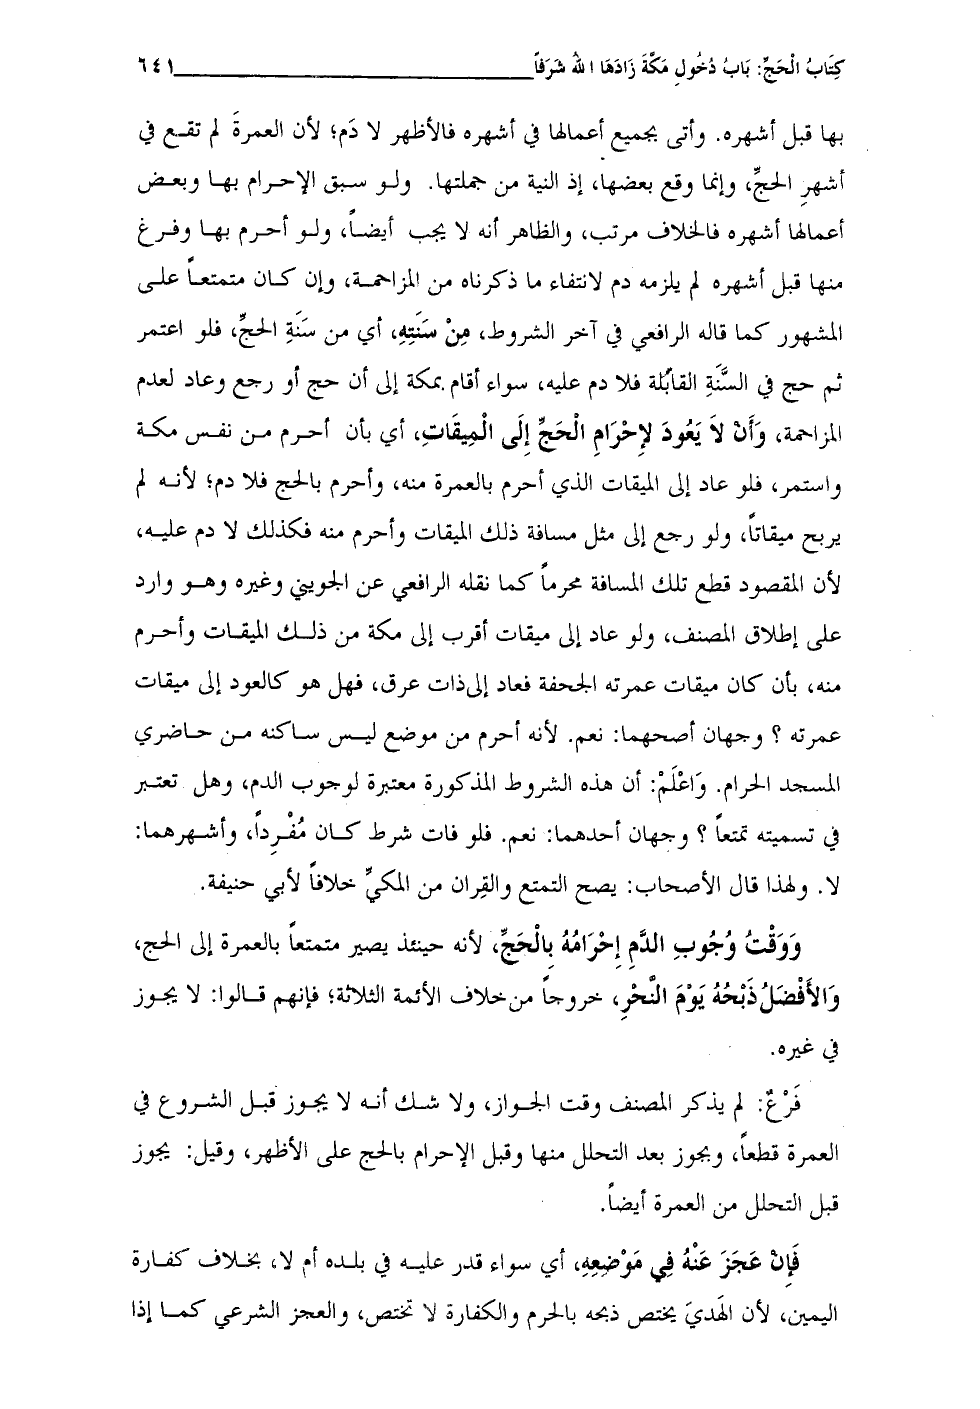 كِتَابُ الْحَجِّ: بَابُ دُخُولِ مَكَّةَ زَادَهَا اللهُ شَرَفاً ٦٤١
بها قبل أشهره. وأتى بجميع أعمالها في أشهره فالأظهر لا دَم؛ لأن العمرةَ لم تقع في
أشهرِ الحجِّ، وإنما وقع بعضها، إذ النية من جملتها. ولو سبق الإحرام بها وبعض
أعمالها أشهره فالخلاف مرتب، والظاهر أنه لا يجب أيضاً، ولو أحرم بها وفرغ
منها قبل أشهره لم يلزمه دم لانتفاء ما ذكرناه من المزاحمة، وإن كان متمتعاً على
المشهور كما قاله الرافعي في آخر الشروط، مِنْ سَنَتِهِ، أي من سَنَةِ الحجِّ، فلو اعتمر
ثم حج في السَّنَةِ القابلة فلا دم عليه، سواء أقام بمكة إلى أن حج أو رجع وعاد لعدم
المزاحمة، وَأَنْ لاَ يَعُودَ لإِحْرَامِ الْحَجِّ إِلَى الْمِيقَاتِ، أي بأن أحرم من نفس مكة
واستمر، فلو عاد إلى الميقات الذي أحرم بالعمرة منه، وأحرم بالحج فلا دم؛ لأنه لم
يربح ميقاتاً، ولو رجع إلى مثل مسافة ذلك الميقات وأحرم منه فكذلك لا دم عليه،
لأن المقصود قطع تلك المسافة محرماً كما نقله الرافعي عن الجويني وغيره وهو وارد
على إطلاق المصنف، ولو عاد إلى ميقات أقرب إلى مكة من ذلك الميقات وأحرم
منه، بأن كان ميقات عمرته الجحفة فعاد إلى ذات عرق، فهل هو كالعود إلى ميقات
عمرته ؟ وجهان أصحهما: نعم. لأنه أحرم من موضع ليس ساكنه من حاضري
المسجد الحرام. وَاعْلَمْ: أن هذه الشروط المذكورة معتبرة لوجوب الدم، وهل تعتبر
في تسميته تمتعاً ؟ وجهان أحدهما: نعم. فلو فات شرط كان مُفْرِداً، وأشهرهما:
لا. ولهذا قال الأصحاب: يصح التمتع والقِران من المكيِّ خلافاً لأبي حنيفة.
وَوَقْتُ وُجُوبِ الدَّمِ إِحْرَامُهُ بِالْحَجِّ، لأنه حينئذ يصير متمتعاً بالعمرة إلى الحج،
وَالأَفْضَلُ ذَبْحُهُ يَوْمَ النَّحْرِ، خروجاً من خلاف الأئمة الثلاثة؛ فإنهم قالوا: لا يجوز
في غيره.
فَرْعٌ: لم يذكر المصنف وقت الجواز، ولا شك أنه لا يجوز قبل الشروع في
العمرة قطعاً، ويجوز بعد التحلل منها وقبل الإحرام بالحج على الأظهر، وقيل: يجوز
قبل التحلل من العمرة أيضاً.
فَإِنْ عَجَزَ عَنْهُ فِي مَوْضِعِهِ، أي سواء قدر عليه في بلده أم لا، بخلاف كفارة
اليمين، لأن الهَديَ يختص ذبحه بالحرم والكفارة لا تختص، والعجز الشرعي كما إذا